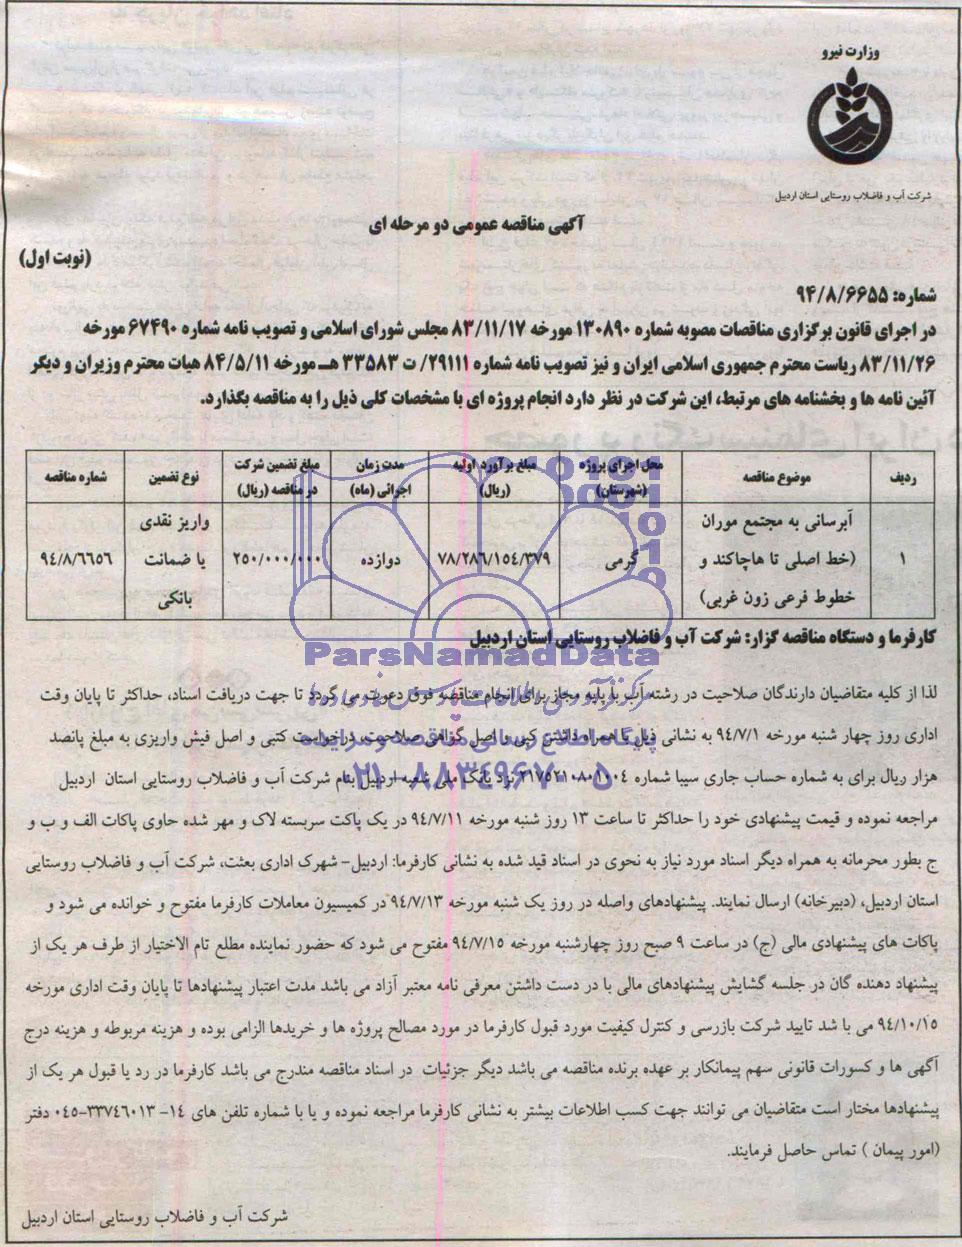 وزارت نیرو
شرکت آب و فاضلاب روستایی استان اردبیل
آگهی مناقصه عمومی دو مرحله ای
(نوبت اول)
شماره: ۹۴/۸/۶۶۵۵
در اجرای قانون برگزاری مناقصات مصوبه شماره ۱۳۰۸۹۰ مورخه ۸۳/۱۱/۱۷ مجلس شورای اسلامی و تصویب نامه شماره ۶۷۴۹۰ مورخه
۸۳/۱۱/۲۶ ریاست محترم جمهوری اسلامی ایران و نیز تصویب نامه شماره ۲۹۱۱۱/ ت ۳۳۵۸۳ هـ مورخه ۸۴/۵/۱۱ هیات محترم وزیران و دیگر
آئین نامه ها و بخشنامه های مرتبط، این شرکت در نظر دارد انجام پروژه ای با مشخصات کلی ذیل را به مناقصه بگذارد.
ردیف موضوع مناقصه محل اجرای پروژه (شهرستان) مبلغ برآورد اولیه (ریال) مدت زمان اجرائی (ماه) مبلغ تضمین شرکت در مناقصه (ریال) نوع تضمین شماره مناقصه
۱ آبرسانی به مجتمع موران (خط اصلی تا هاچاکند و خطوط فرعی زون غربی) گرمی ۷۸/۲۸۶/۱۵۴/۳۷۹ دوازده ۲۵۰/۰۰۰/۰۰۰ واریز نقدی یا ضمانت بانکی ۹۴/۸/۶۶۵۶
کارفرما و دستگاه مناقصه گزار: شرکت آب و فاضلاب روستایی استان اردبیل
ParsNamadData
لذا از کلیه متقاضیان دارندگان صلاحیت در رشته آب با پایه مجاز برای انجام مناقصه فوق دعوت می گردد تا جهت دریافت اسناد، حداکثر تا پایان وقت
اداری روز چهار شنبه مورخه ۹۴/۷/۱ به نشانی ذیل با همراه داشتن کپی و اصل گواهی صلاحیت، درخواست کتبی و اصل فیش واریزی به مبلغ پانصد
پایگاه اطلاع رسانی مناقصه و مزایده
هزار ریال برای به شماره حساب جاری سیبا شماره ۲۱۷۵۲۱۰۸۰۱۰۰۴ نزد بانک ملی شعبه اردبیل بنام شرکت آب و فاضلاب روستایی استان اردبیل
۰۲۱-۸۸۳۴۹۶۷۰-۵
مراجعه نموده و قیمت پیشنهادی خود را حداکثر تا ساعت ۱۳ روز شنبه مورخه ۹۴/۷/۱۱ در یک پاکت سربسته لاک و مهر شده حاوی پاکات الف و ب و
ج بطور محرمانه به همراه دیگر اسناد مورد نیاز به نحوی در اسناد قید شده به نشانی کارفرما: اردبیل- شهرک اداری بعثت، شرکت آب و فاضلاب روستایی
استان اردبیل، (دبیرخانه) ارسال نمایند. پیشنهادهای واصله در روز یک شنبه مورخه ۹۴/۷/۱۳ در کمیسیون معاملات کارفرما مفتوح و خوانده می شود و
پاکات های پیشنهادی مالی (ج) در ساعت ۹ صبح روز چهارشنبه مورخه ۹۴/۷/۱۵ مفتوح می شود که حضور نماینده مطلع تام الاختیار از طرف هر یک از
پیشنهاد دهنده گان در جلسه گشایش پیشنهادهای مالی با در دست داشتن معرفی نامه معتبر آزاد می باشد مدت اعتبار پیشنهادها تا پایان وقت اداری مورخه
۹۴/۱۰/۱۵ می با شد تایید شرکت بازرسی و کنترل کیفیت مورد قبول کارفرما در مورد مصالح پروژه ها و خریدها الزامی بوده و هزینه مربوطه و هزینه درج
آگهی ها و کسورات قانونی سهم پیمانکار بر عهده برنده مناقصه می باشد دیگر جزئیات در اسناد مناقصه مندرج می باشد کارفرما در رد یا قبول هر یک از
پیشنهادها مختار است متقاضیان می توانند جهت کسب اطلاعات بیشتر به نشانی کارفرما مراجعه نموده و یا با شماره تلفن های ۱۴- ۳۳۷۴۶۰۱۳-۰۴۵ دفتر
(امور پیمان ) تماس حاصل فرمایند.
شرکت آب و فاضلاب روستایی استان اردبیل